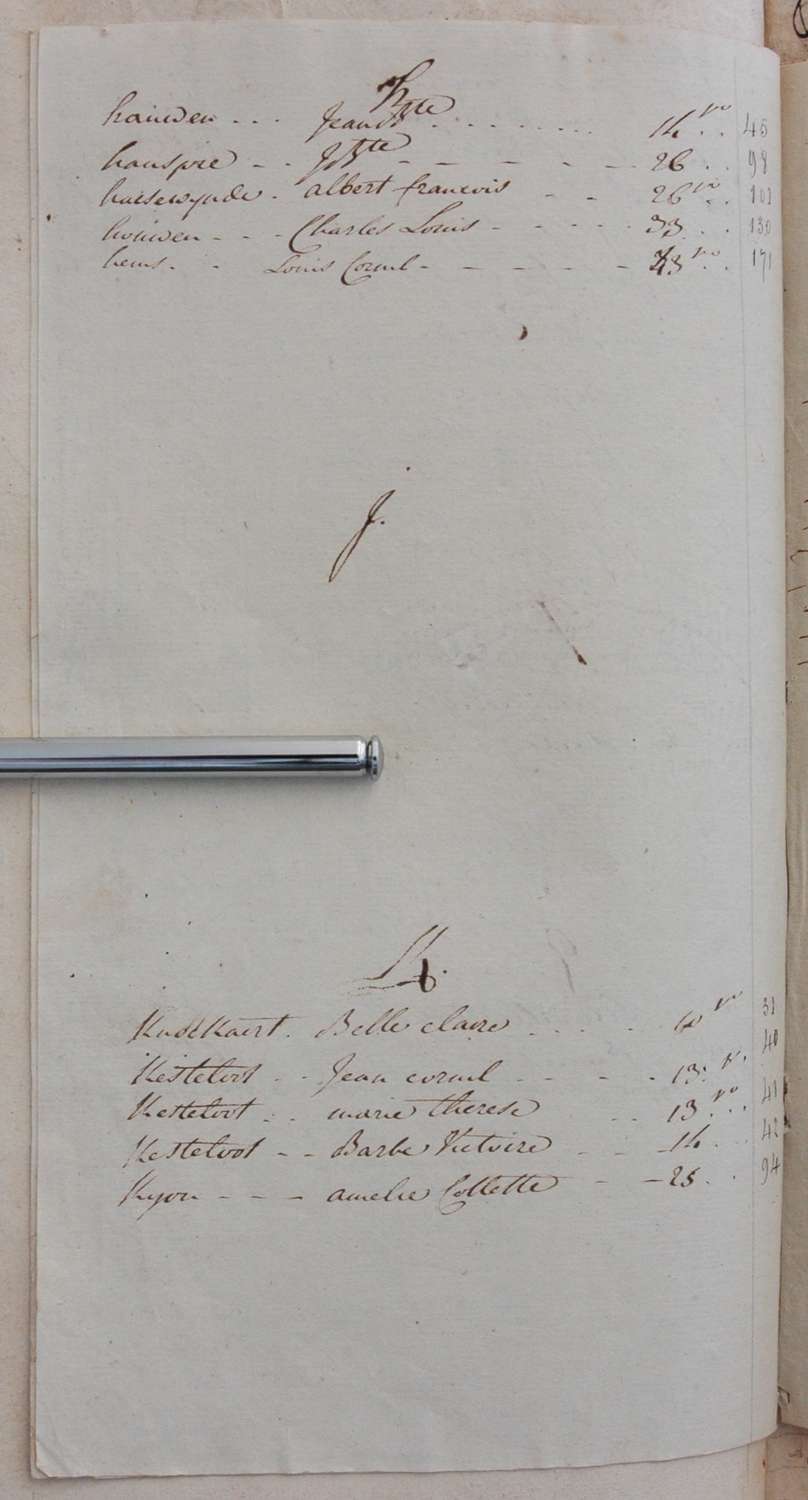 h
hauwen - - - Jean Bte - - - - - - - 14 vo . . 45
hauspie - - - J Bte - - - - - - 26 . . 98
huisewynde - albert francois - - 26 vo . . 102
houwen - - - Charles Louis - - - - - 33 . . 130
hens - - Louis Cornl - - - - - 43 vo . . 171
J.
K.
Kudekaert . Belle claire - - - - vo 31
Kesteloot - - Jean cornl - - - - 13 . vo . 40
Kesteloot - - marie therese - - 13 vo . . 41
Kesteloot - - Barbe Victoire - - - 14 . . 42
Kyou - - - amelie Collette - - 25 . . 94